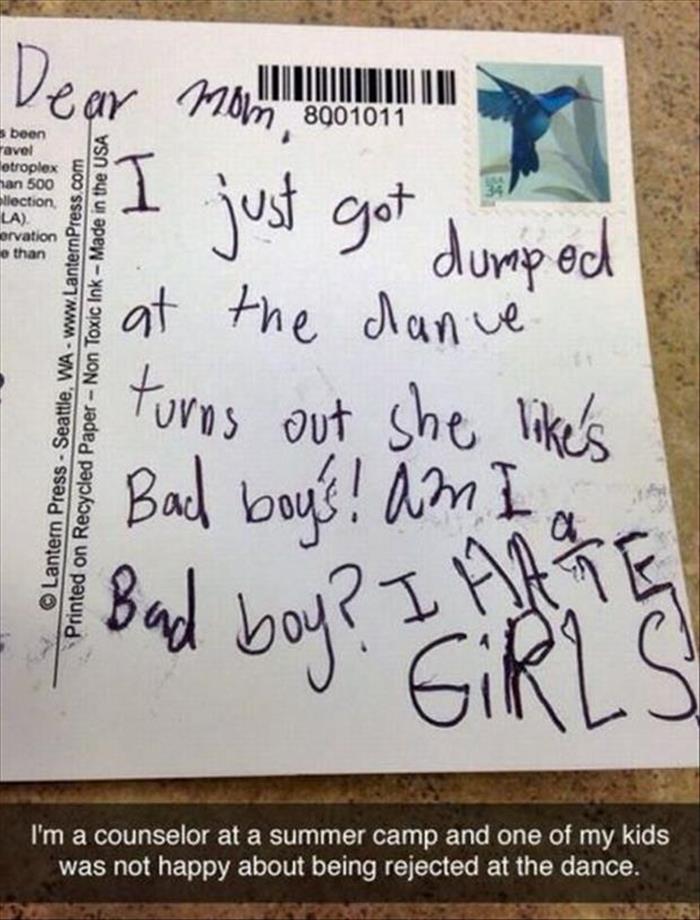 Dear mom,
8001011
USA
34
s been
ravel
etroplex
han 500
ollection,
LA)
ervation
e than
© Lantern Press - Seattle, WA - www.LanternPress.com
Printed on Recycled Paper – Non Toxic Ink – Made in the USA
I just got dumped
at the dance
turns out she like's
Bad boy's! Am I a
Bad boy? I HATE
GiRLS
I'm a counselor at a summer camp and one of my kids
was not happy about being rejected at the dance.